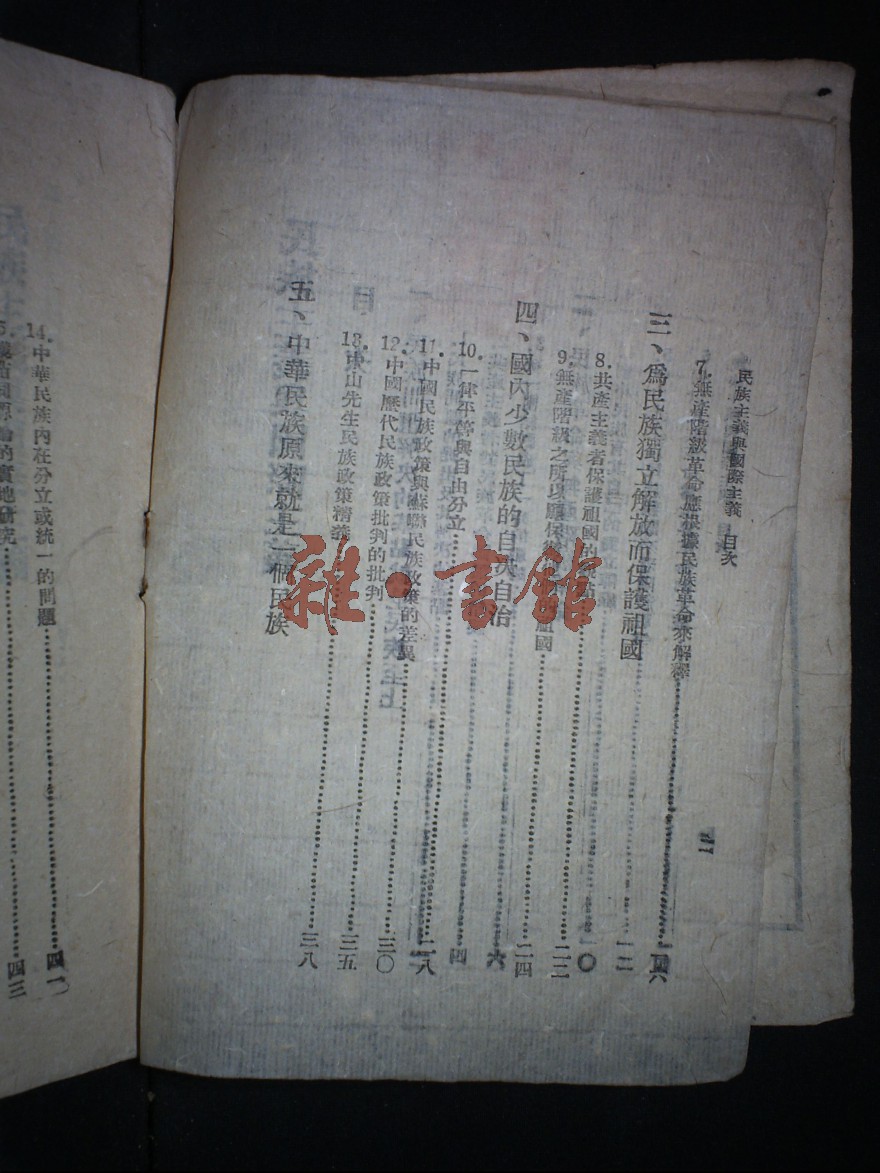 民族主義與國際主義 目次
7.無產階級革命應根據民族革命來解釋
三、爲民族獨立解放而保護祖國
8.共產主義者保護祖國的
9.無產階級之所以應保衛 祖國
四、國內少數民族的自決自治
10.一律平等與自由分立
11.中國民族政策與蘇聯民族政策的差異
12.中國歷代民族政策批判的批判
13.中山先生民族政策精義
五、中華民族原來就是一個民族
二
一二
二二
二四
二八
三〇
三五
三八
14.中華民族內在分立或統一的問題
的實地研究
四〇
四三
雜·書館